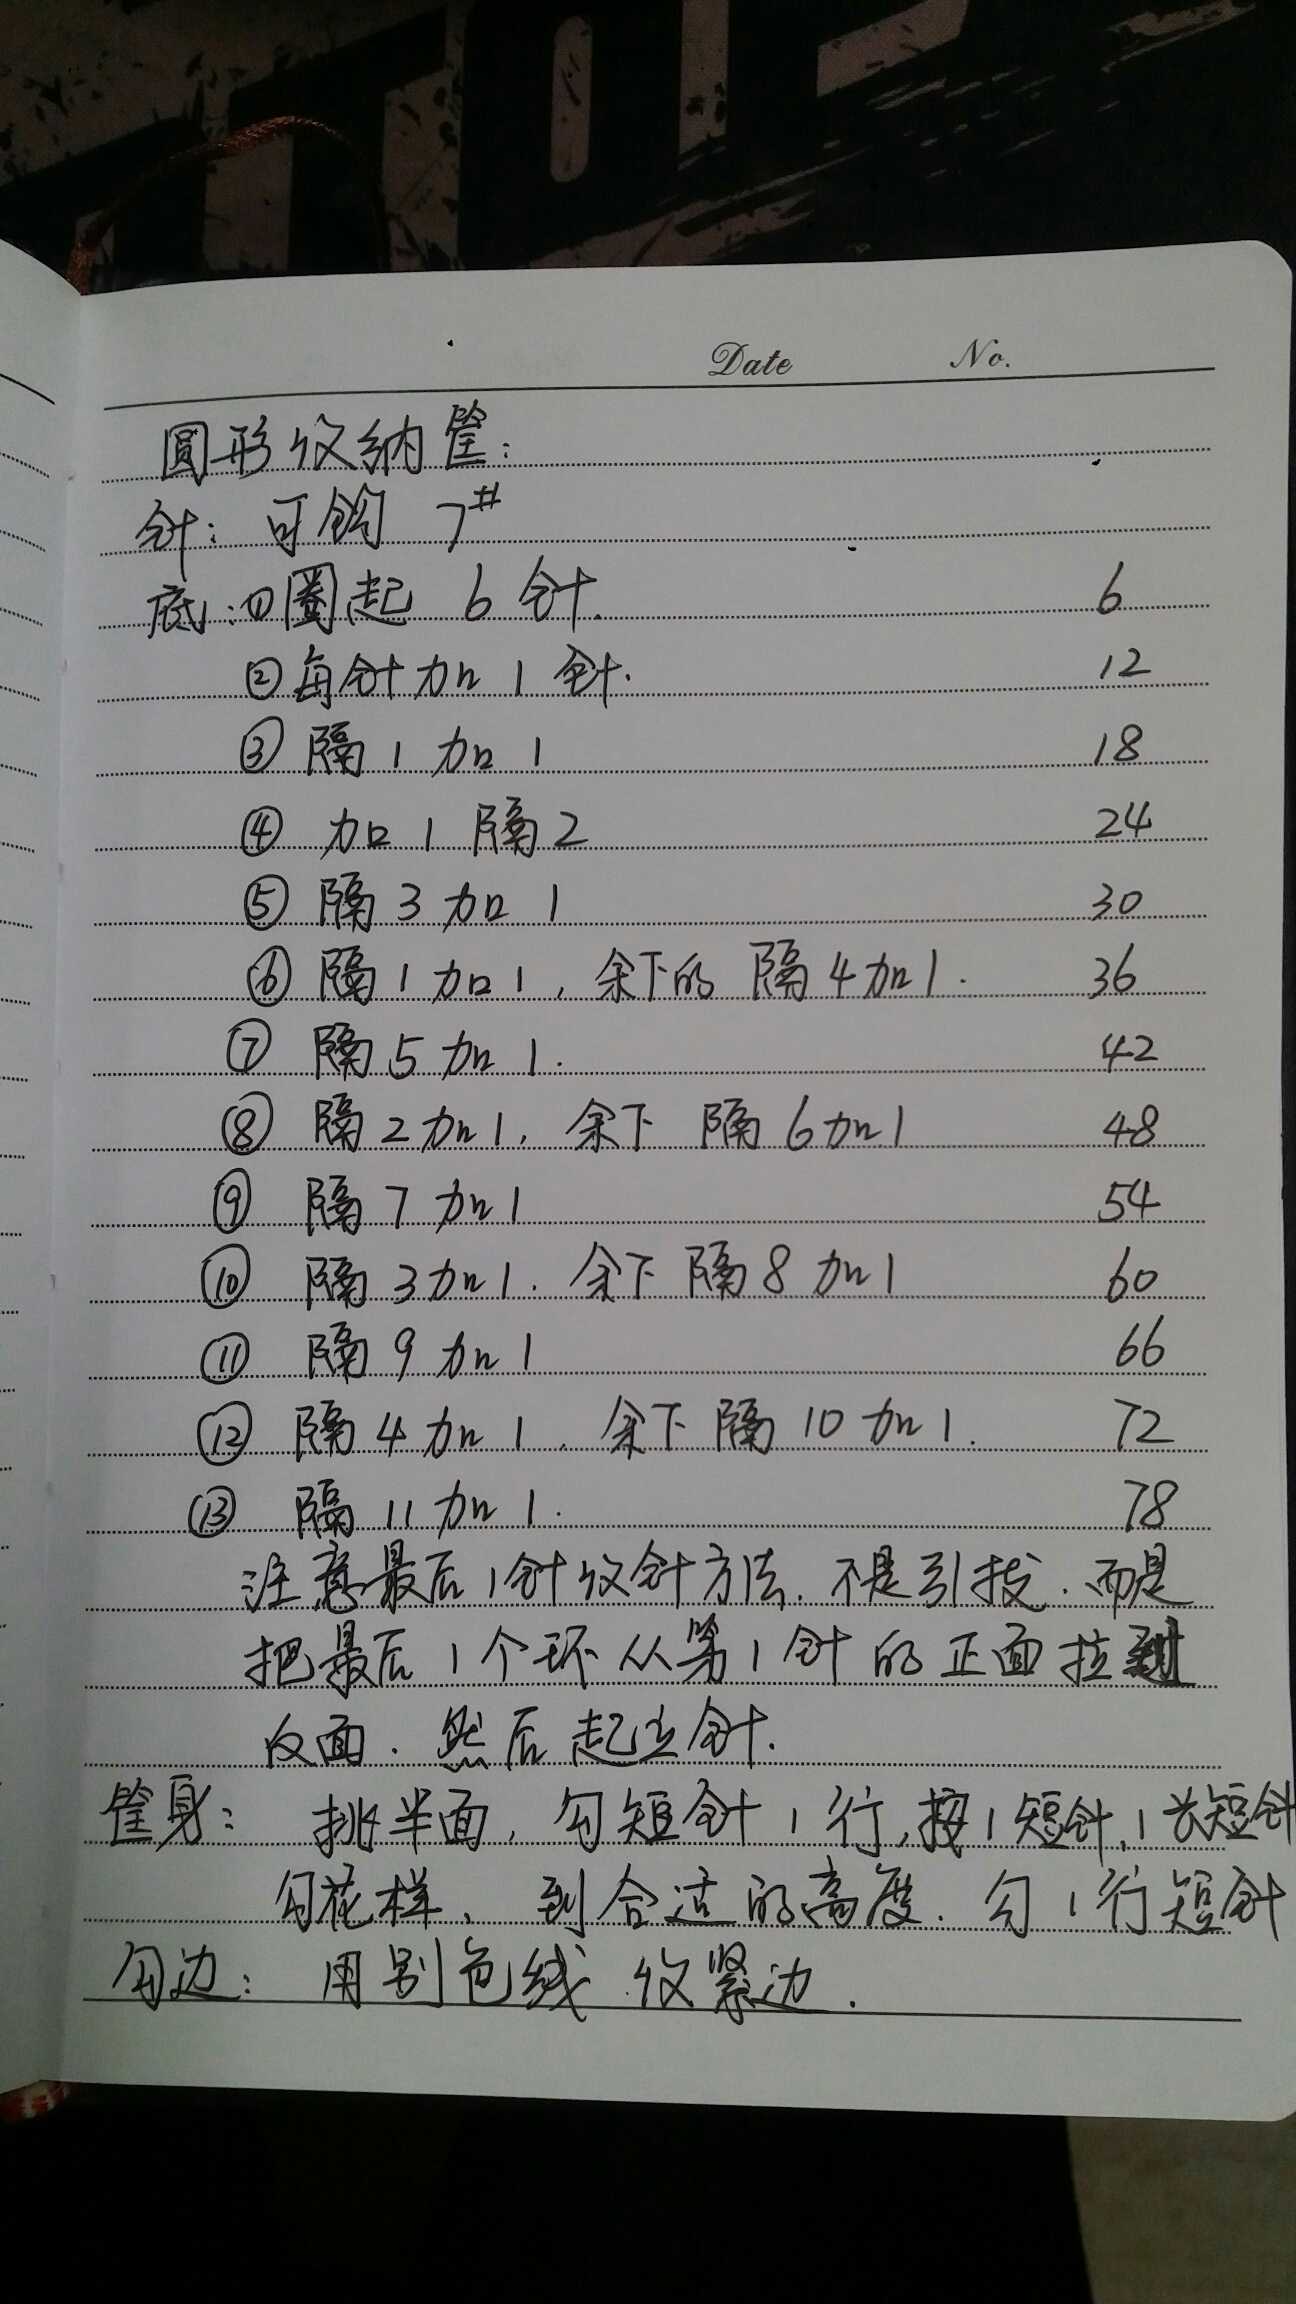 Date No.
圆形收纳筐：
针：可钩 7#
底：①圈起 6 针. 6
②每针加 1 针. 12
③ 隔 1 加 1 18
④ 加 1 隔 2 24
⑤ 隔 3 加 1 30
⑥ 隔 1 加 1，余下的 隔 4 加 1. 36
⑦ 隔 5 加 1. 42
⑧ 隔 2 加 1，余下 隔 6 加 1 48
⑨ 隔 7 加 1 54
⑩ 隔 3 加 1. 余下 隔 8 加 1 60
⑪ 隔 9 加 1 66
⑫ 隔 4 加 1，余下 隔 10 加 1. 72
⑬ 隔 11 加 1. 78
注意最后 1 针收针方法. 不是引拔. 而是
把最后 1 个环从第 1 针的正面拉到
反面. 然后起立针.
筐身： 挑半面，勾短针 1 行，按 1 短针，1 长短针
勾花样、到合适的高度. 勾 1 行短针
勾边： 用别色线 收紧边.